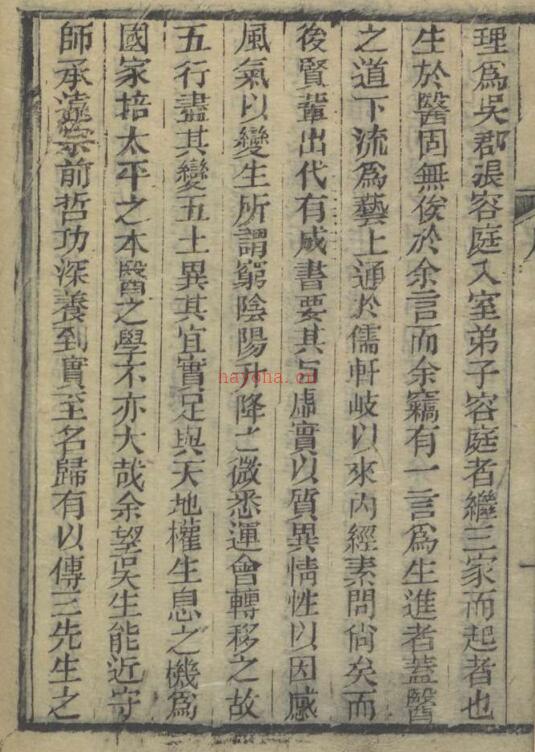 理爲吳郡張容庭入室弟子容庭者繼三家而起者也
生於醫固無俟於余言而余竊有一言爲生進者蓋醫
之道下流爲藝上通於儒軒岐以來內經素問尙矣而
後賢輩出代有成書要其旨虛實以質異情性以因感
風氣以變生所謂窮陰陽升降之微悉運會轉移之故
五行盡其變五土異其宜實足與天地權生息之機爲
國家培太平之本醫之學不亦大哉余望吳生能近守
師承遠宗前哲功深養到實至名歸有以傳三先生之
hayoha.cn